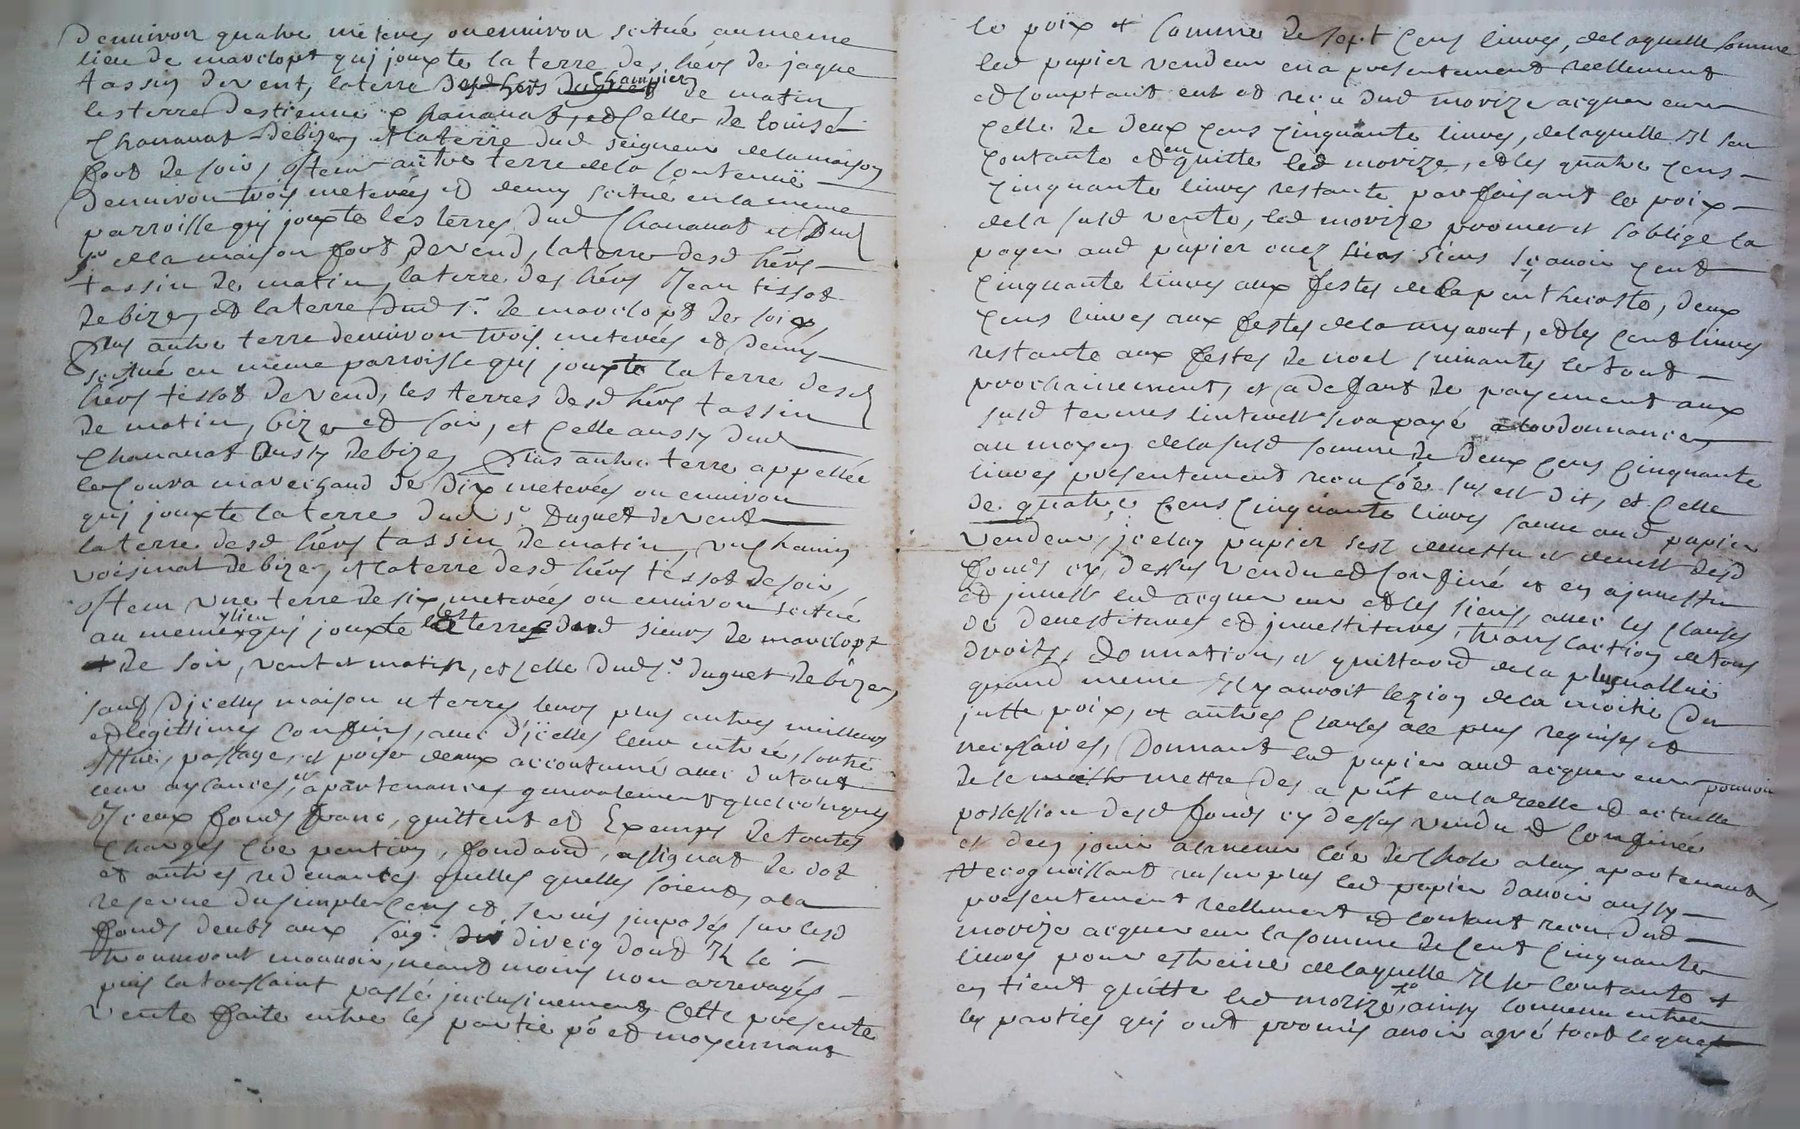 Denviron quatre meterés ou environ scitué au meme
lieu de mavelopt quj jouxte la terre des hérs de jaque
tassin de vent, la terre champier de matin,
les terre destienne Chananat, et Celle de louise
Chananat de bize, et la terre dud seigneur de la maison
fort de soir, Item autre terre de la Contenuë
Denviron trois meterées et demy scitué en la meme
parroisse quj jouxte les terres dud Chananat et Dud
sr de la maison fort de vend, la terre desd hérs
tassin de matin, la terre des hérs Jean tissot
de bize, et la terre dud sr de mavelopt de soir,
Plus autre terre denviron trois meterées et demy
scitué en meme parroisse quj jouxte la terre desd
hérs tissot de vend, les terres desd hérs tassin
de matin, bize et soir, et Celle aussy dud
Chananat Aussy de bize, Plus autre terre appellée
le Coura marechand de Dix meterées ou environ
quj jouxte la terre dud sr Duguet de vent
la terre desd hérs tassin de matin, un chemin
voisinal de bize, et la terre desd hérs tissot de soir,
Item une terre de six meterées ou environ scitué
au meme lieu quj jouxte les terres dud sieurs de mavelopt
de soir, vent et matin, et Celle dud sr duguet de bize,
sauf Djcelles maison et terres leurs plus autres meilleurs
et legittimes Confins, avec djcelles leur entrée, sortie
issue, passage, et poser deaux accoutumé avec du tout
leur aysances, et apartenances generalement quelconques
Jceux fonds franc, quittent et Exempts de toutes
Charges Côe pention, fondaõn, assignat de dot
et autres redevances quelles quelles soient, a la
reserve du simple Cens et servis jmposés sur lesd
fonds deubs aux seigr divecq dont Jl se
trouveront mouvoir, neant moins non arreragés
puis la toussaint passé jnclusivement Cette présente
vente faite entre les partie pñ et moyennant
le prix et Somme de sept Cens livres, de laquelle somme
led papier vendeur en a présentement reellement
et Comptant eut et reçu dud morize acquereur
Celle de deux Cens Cinquante livres, de laquelle Jl sen
Contante et en quitte led morize, et les quatre Cens
Cinquante livres restante parfaisant le prix
de la susd vente, led morize promet et soblige la
payer aud papier ou ez siens sçavoir Cent
Cinquante livres aux festes de la penthecoste, deux
Cens livres aux festes de la my aout, et les Cent livres
restante aux festes de noel suivantes le tout
prochainement, et a defaut de payement aux
susd termes linterest sera payé a lordonnance,
au moyen de la susd somme de Deux Cens Cinquante
livres présentement reçu Côe sus est dit, et Celle
de quatre Cens Cinquante livres sauve aud papier
vendeur, jceluy papier sest demettu et demest desd
fonds cy dessus vendu et Confiné et en a jnvestu
et jnvest led acquereur et les siens, avec les Clauses
de devestitures et jnvestitures, translaction de tous
droits, Donnation, et quittaõn de la plus vallue
quand meme Jl y auroit lezion de la moitié du
juste prix, et autres Clauses a ce plus requises et
necessaires, Donnant led papier aud acquereur pouvoir
de se mettre des a pñt en la réelle et actuelle
possession desd fonds cy dessus vendu et Confinée
et den jouir a lavenir Côe de Chose a luy apartenante,
Recognoissant au surplus led papier davoir aussy
présentement reellement et Contant reçu dud
morize acquereur la somme de Cent Cinquante
livres pour estreine de laquelle Jl se Contante et
en tient quitte led morize, ainsy Convenu entre
les parties quj ont promis avoir agré tout le que